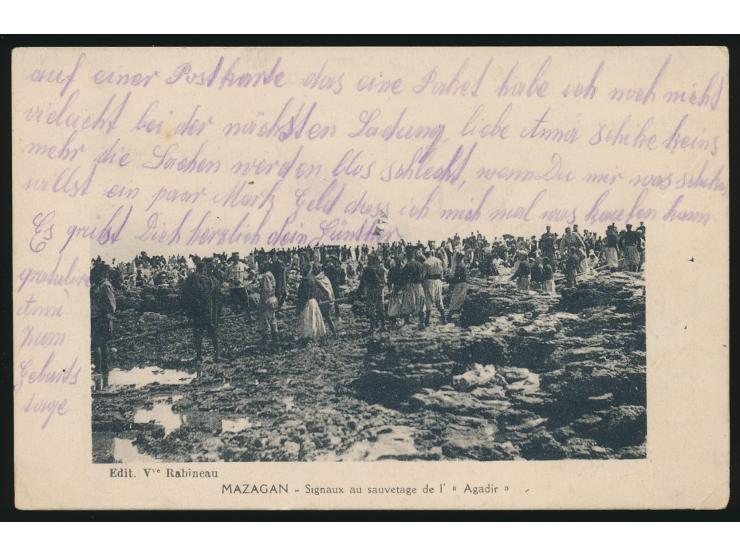 auf einer Postkarte das eine Paket habe ich noch nicht
vielacht bei der nächsten Ladung, liebe Anna schike keins
mehr die Sachen werden blos schlecht, wenn Du mir was schiken
willst ein paar Mark Geld dass ich mich mal was kaufen kann
Es grüßt Dich herzlich dein
gratulire
Anna
zum
Geburts
tage
Edit. Vve Rabineau
MAZAGAN - Signaux au sauvetage de l' « Agadir »